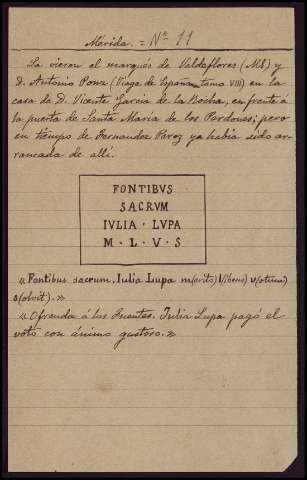 Mérida. = Nº 11
La vieron el marqués de Valdeflores (MS) y
D. Antonio Ponz (Viage de España tomo VIII) en la
casa de D. Vicente García de la Rocha, enfrente á
la puerta de Santa María de los Perdones; pero
en tiempo de Fernandez Perez ya había sido ar-
rancada de allí.
FONTIBVS
SACRVM
IVLIA · LVPA
M · L · V · S
«Fontibus sacrum. Iulia Lupa m(erito) l(ibens) v(otum)
s(olvit).»
«Ofrenda á las Fuentes. Julia Lupa pagó el
voto con ánimo gustoso.»